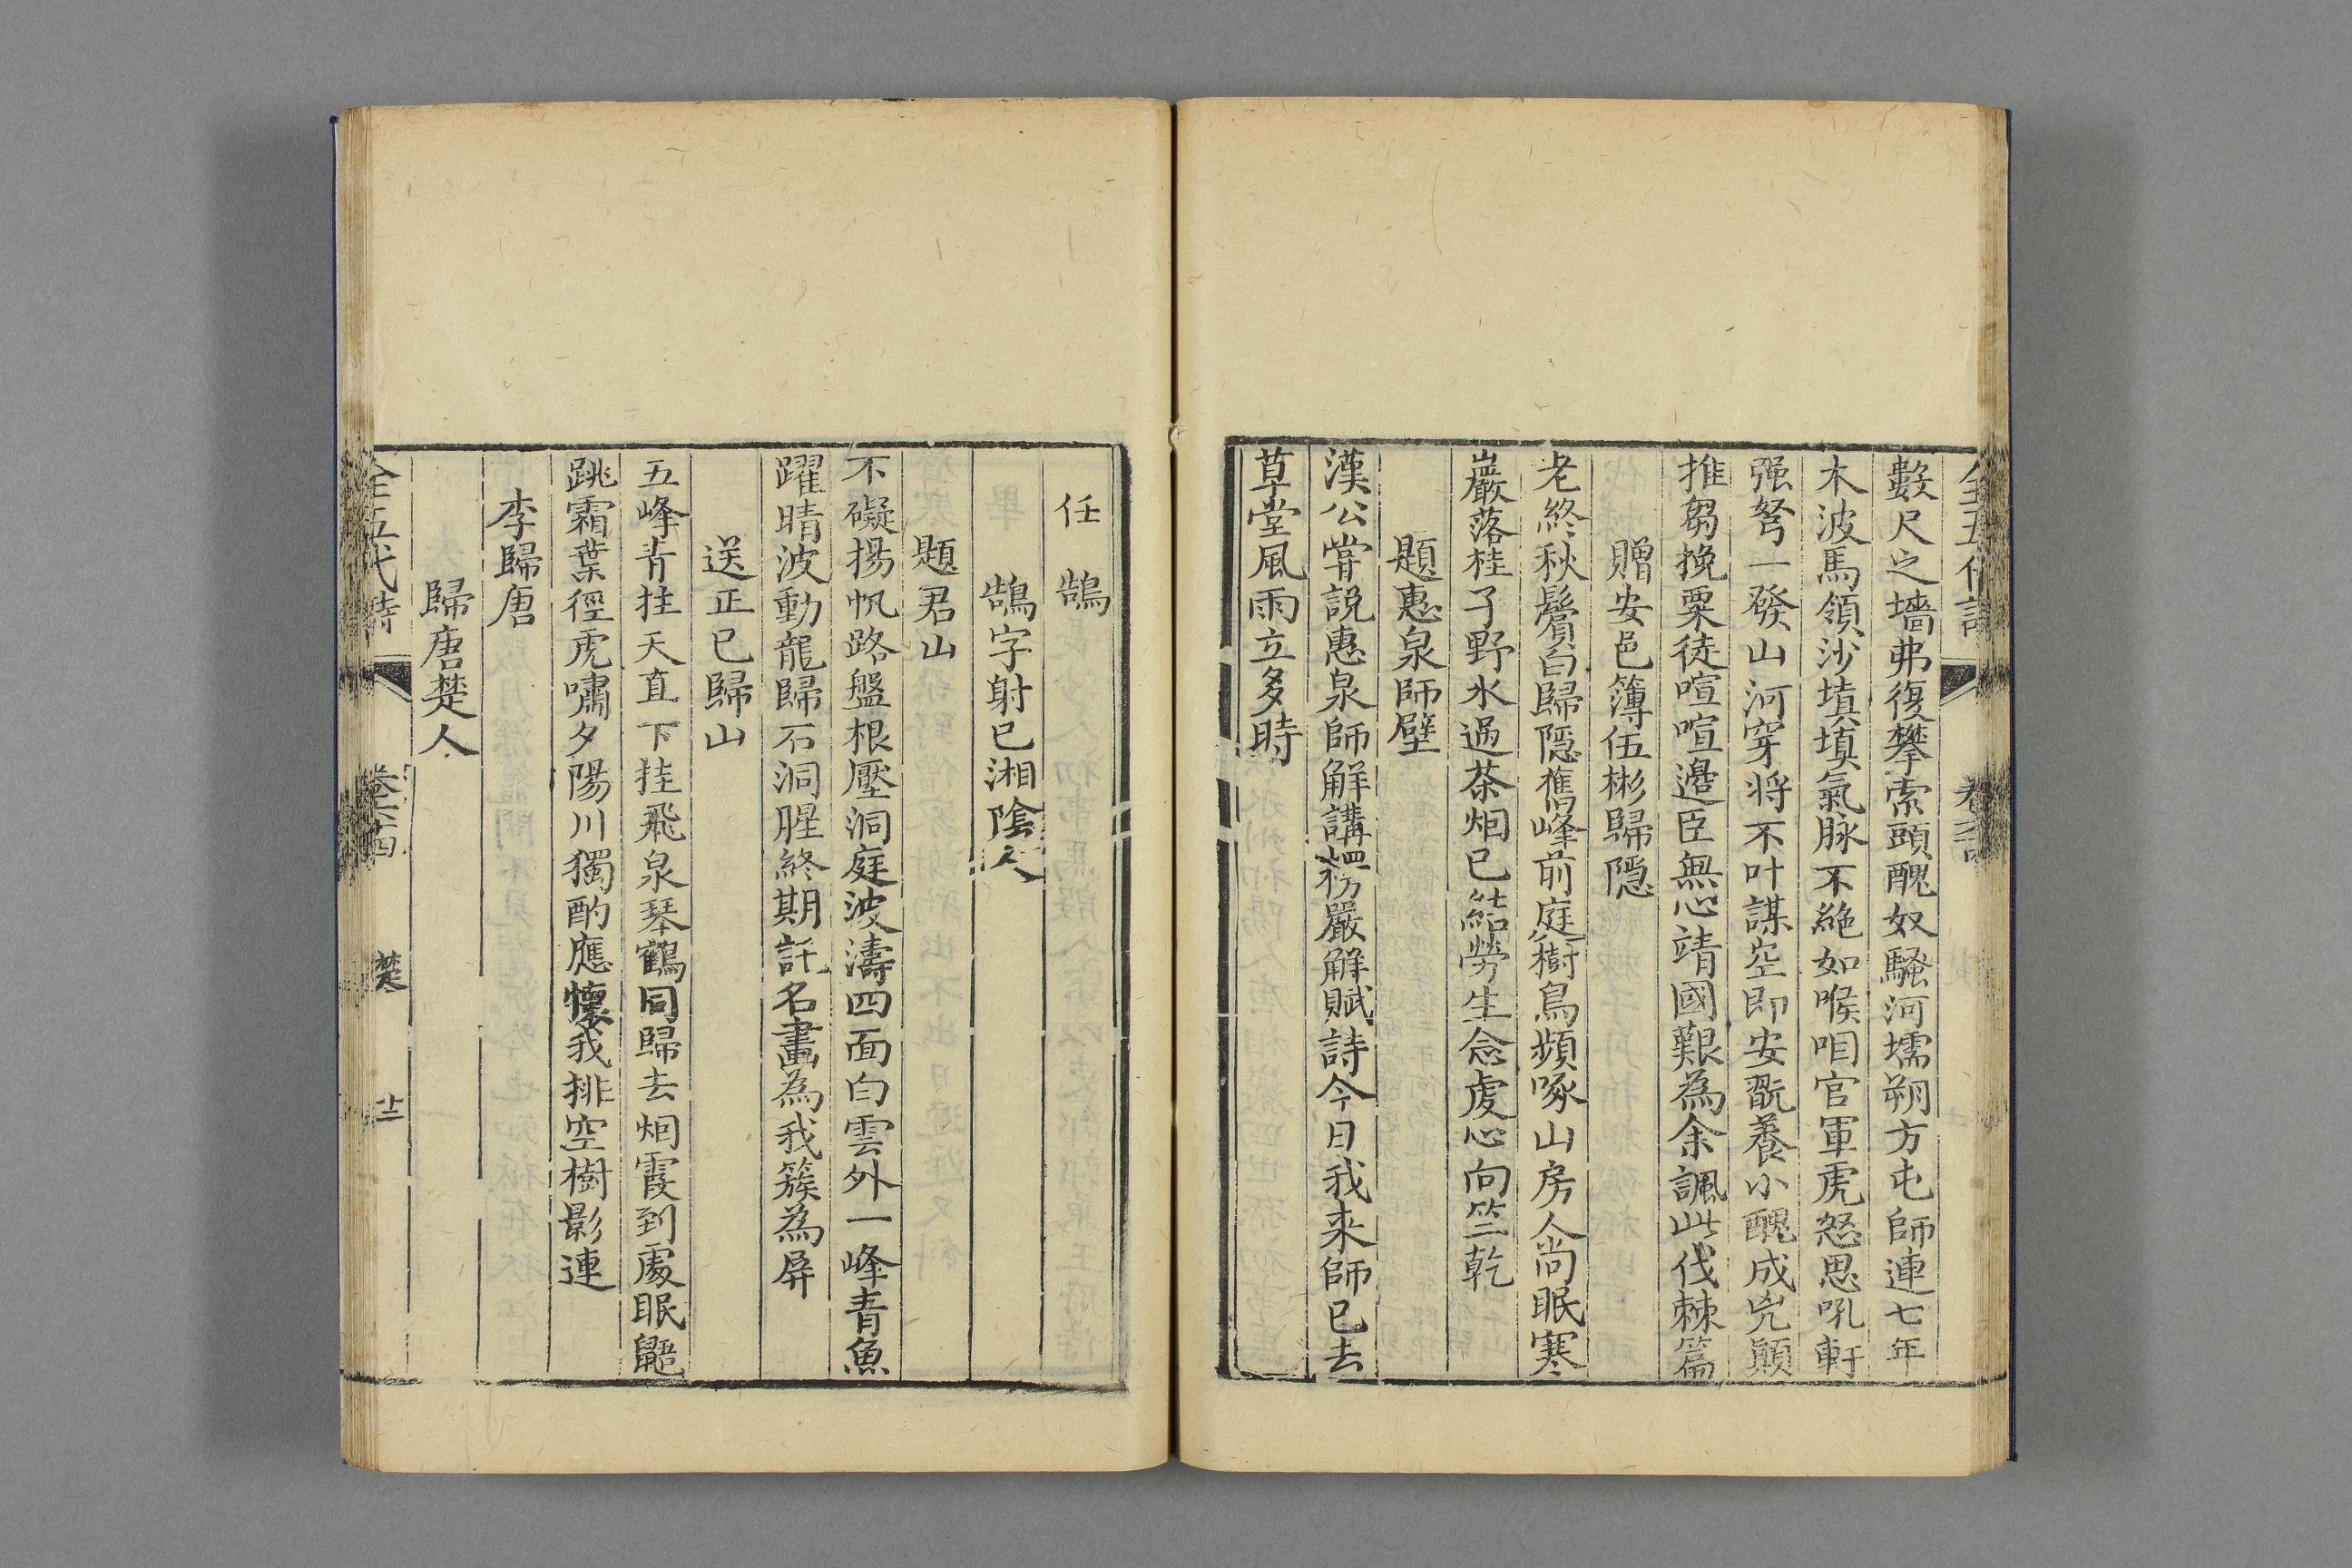 數尺之墻弗復攀索頭醜奴騷河壖朔方屯師連七年
木波馬領沙填填氣脉不絶如喉咽官軍虎怒思吼軒
强弩一發山河穿将不叶謀空即安翫養小醜成兇顛
推芻挽粟徒喧喧邉臣無心靖國艱為余諷此伐棘篇
贈安邑簿伍彬歸隱
老終秋鬢白歸隱舊峰前庭樹鳥頻啄山房人尚眠寒
巖落桂子野水過茶烟已結勞生念虔心向竺乾
題惠泉師壁
漢公嘗説惠泉師解講楞嚴解賦詩今日我来師已去
草堂風雨立多時
任鵠
鵠字射已湘陰人
題君山
不礙揚帆路盤根壓洞庭波濤四面白雲外一峰青魚
躍晴波動龍歸石洞腥終期託名畫為我簇為屏
送正已歸山
五峰青拄天直下挂飛泉琴鶴同歸去烟霞到處眠鼯
跳霜葉徑虎嘯夕陽川獨酌應懷我排空樹影連
李歸唐
歸唐楚人
全五代詩
楚
十二